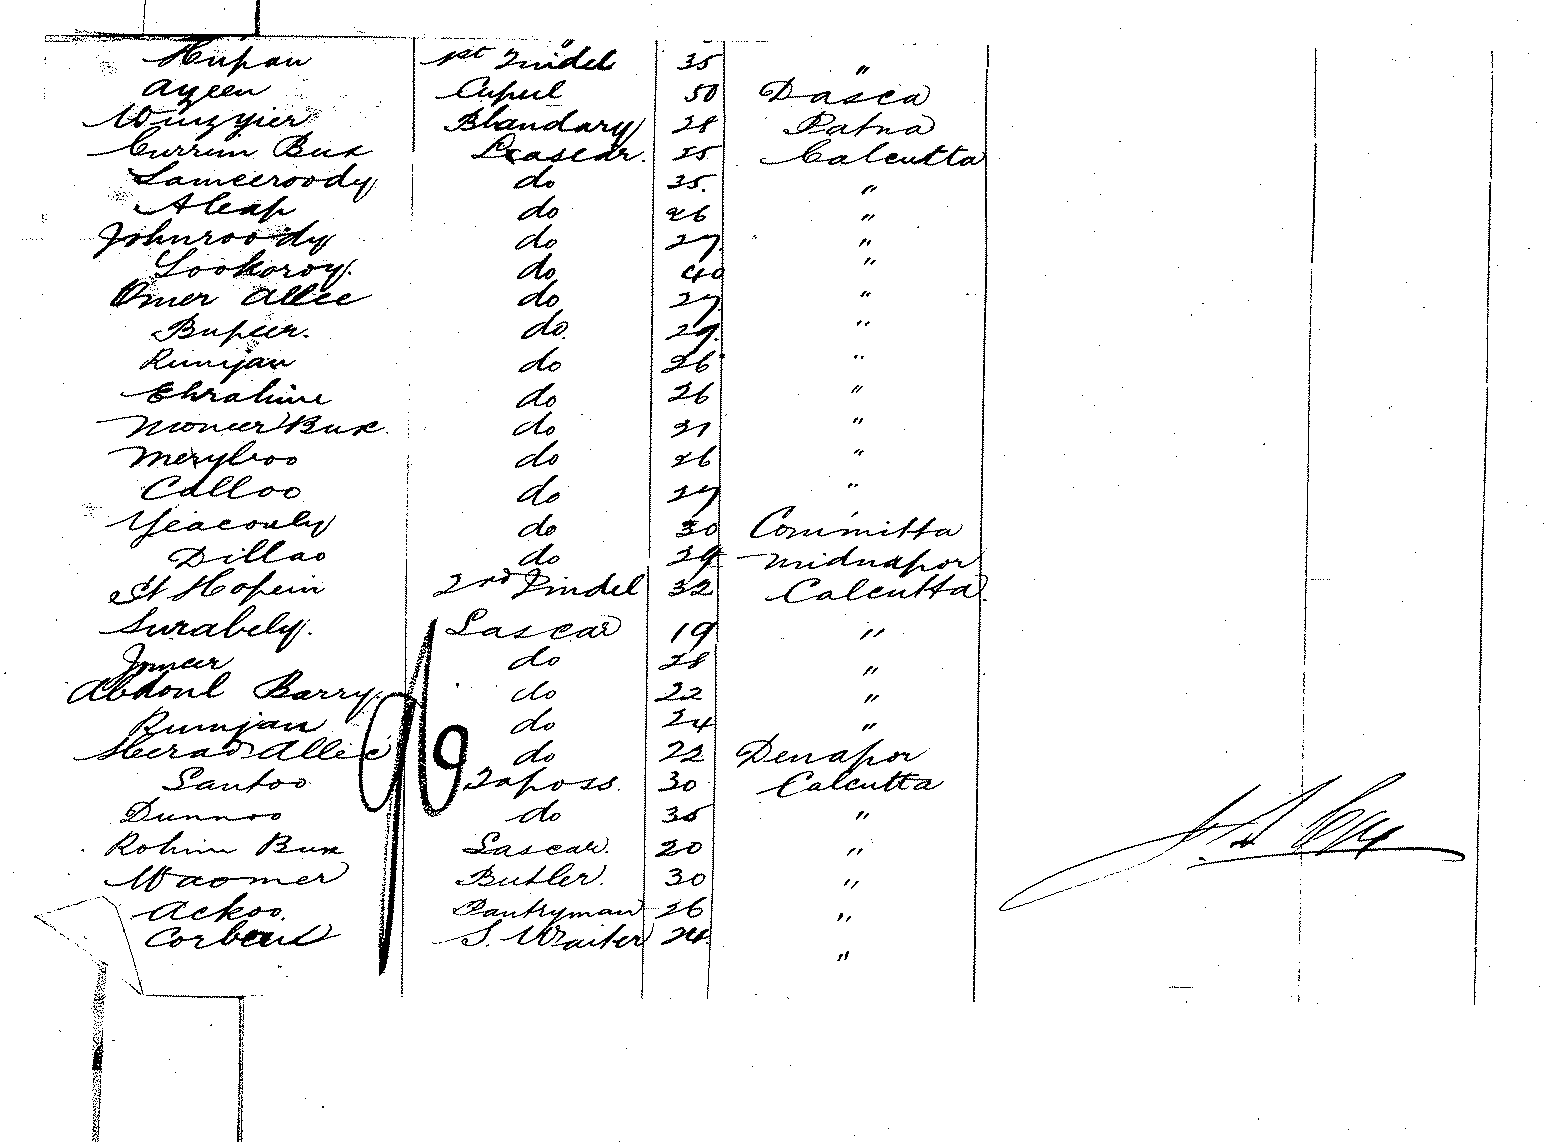 Hupan 1st Tindel 35 "
Ayeen Cupul 50 Dasca
Winzyier Bhandary 28 Patna
Currim Bux Leascar. 25 Calcutta
Sameeroody do 25. "
Aleap do 26 "
Johnroody do 27 "
Lookoroy. do 40 "
Omer Allee do 27 "
Bupeer. do 29 "
Rumjan do 26 "
Ebrahim do 26 "
Moneer Bux do 21 "
Meryboo do 26 "
Calloo do 27 "
Yeacouly do 30 Committa
Dillao do 24 Midnapor
St Hopein 2nd Tindel 32 Calcutta
Surabely. Lascar 19 "
do 28 "
Abdoul Barry do 22 "
Rumjan do 24 "
Allee do 22 Denapor
Santoo Topass. 30 Calcutta
Dunnoo do 35 "
Rohim Bux Lascar. 20 "
Waomer Butler. 30 "
Ackoo. Pantryman 26 "
S. Waiter 24 "
96